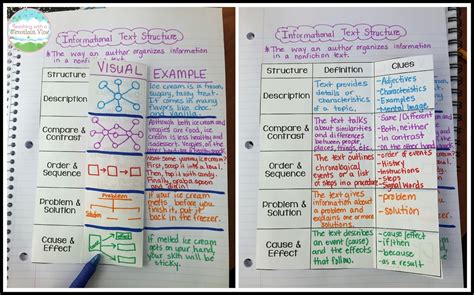 Teaching with a
Mountain View
Informational Text Structure
The way an author organizes information
in a nonfiction text.
Structure
VISUAL
EXAMPLE
Description
Ice cream is a frozen,
sugary, tasty treat.
It comes in many
flavors like choc.
and vanilla.
Compare &
Contrast
Although both ice cream and
veggies are food, ice
cream is healthier and
dessert. Veggies, on the
other hand
Order &
Sequence
Want some yummy ice cream?
First, scoop it into a bowl.
Then, top it with candy.
Finally, grab a spoon
Problem &
Solution
Problem
Solution
If your ice cream
melts before you
finish it, put it
back in the freezer.
Cause &
Effect
If melted ice cream
gets on your hand,
your skin will be
sticky.
Informational Text Structure
The way an author organizes information
in a nonfiction text.
Structure
Definition
Clues
Description
Text provides
details or
characteristics
of a topic.
-Adjectives
-Characteristics
-Examples
-Mental Image
Compare &
Contrast
The text talks
about similarities
and differences
between people,
places, things, etc.
-Same / Different
-Both, neither
-In contrast
-on the other hand
Order &
Sequence
The text outlines
chronological
events or a list
of steps in a procedure
-order of events
-History
-Instructions
-steps
-Signal Words
Problem &
Solution
The text gives
information about
a problem and
explains one or more
solutions.
-problem
-solution
Cause &
Effect
The text describes
an event (cause)
and the effects
that follow.
-cause/effect
-if/then
-because
-as a result